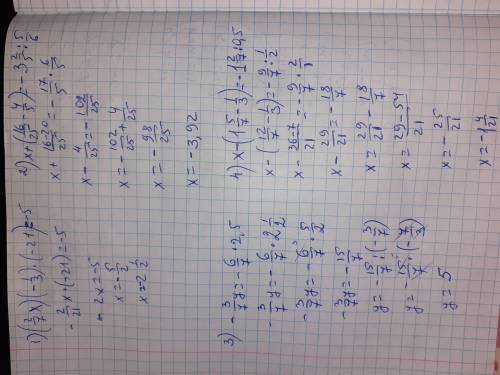 1) (2/7 x)·(-1/3)·(-21)=-5
-2/21 x·(-21)=-5
- 2x=-5
x=-5/2
x=2 1/2
2) x+(16/25-4/5)=-3 2/5:5/6
x+(16-20)/25=-17/5·6/5
x-4/25=-102/25
x=-102/25+4/25
x=-98/25
x=-3,92
3) -3/7y=-6/7·2,5
-3/7y=-6/7·2 1/2
-3/7y=-6/7·5/2
-3/7y=-15/7
y=-15/7:(-3/7)
y=-15/7·(-7/3)
y=5
4) x-(1 5/7-1/3)=-1 2/7:0,5
x-(12/7-1/3)=-9/7:1/2
x-(36-7)/21=-9/7·2/1
x-29/21=-18/7
x=29/21-18/7
x=(29-54)/21
x=-25/21
x=-1 4/21